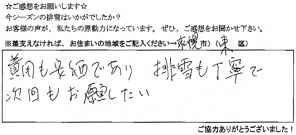 ☆ご感想をお聞かせ下さい☆
今シーズンの排雪はいかがでしたか？
お客様の声が、私たちの原動力になっています。ぜひ、ご感想をお聞かせ下さい。
※差支えなければ、お住まいの地域をご記入ください→（札幌市）（東 区）
費用も安価であり 排雪も丁寧で
次回もお願したい
ご協力ありがとうございました！